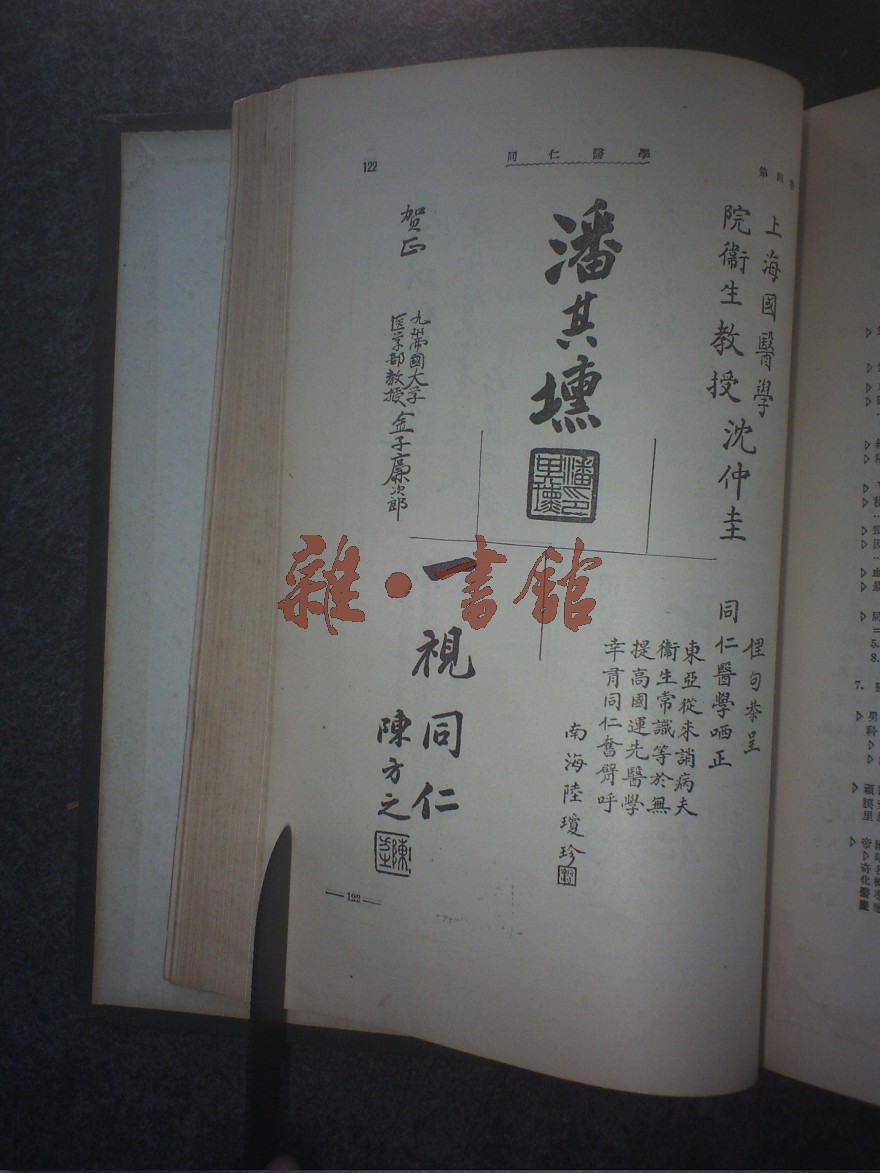 122
同仁醫學
第四卷
上海國醫學
院衞生教授 沈仲圭
潘其壎
賀正
九州帝國大学
医学部教授 金子廉次郎
俚句恭呈
同仁醫學哂正
東亞從来誚病夫
衞生常識等於無
提高國運先醫學
幸有同仁奮臂呼
南海陸瓊珍
一視同仁
陳方之
雜·書館
122
7.